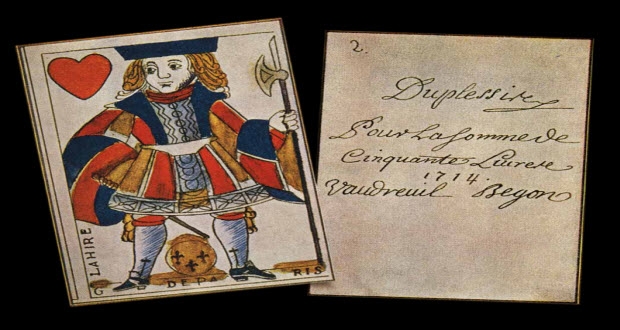 LAHIRE
G DE PA RIS
2.
Duplessis
Pour la Somme de
Cinquante Livres
1714.
Vaudreuil Begon